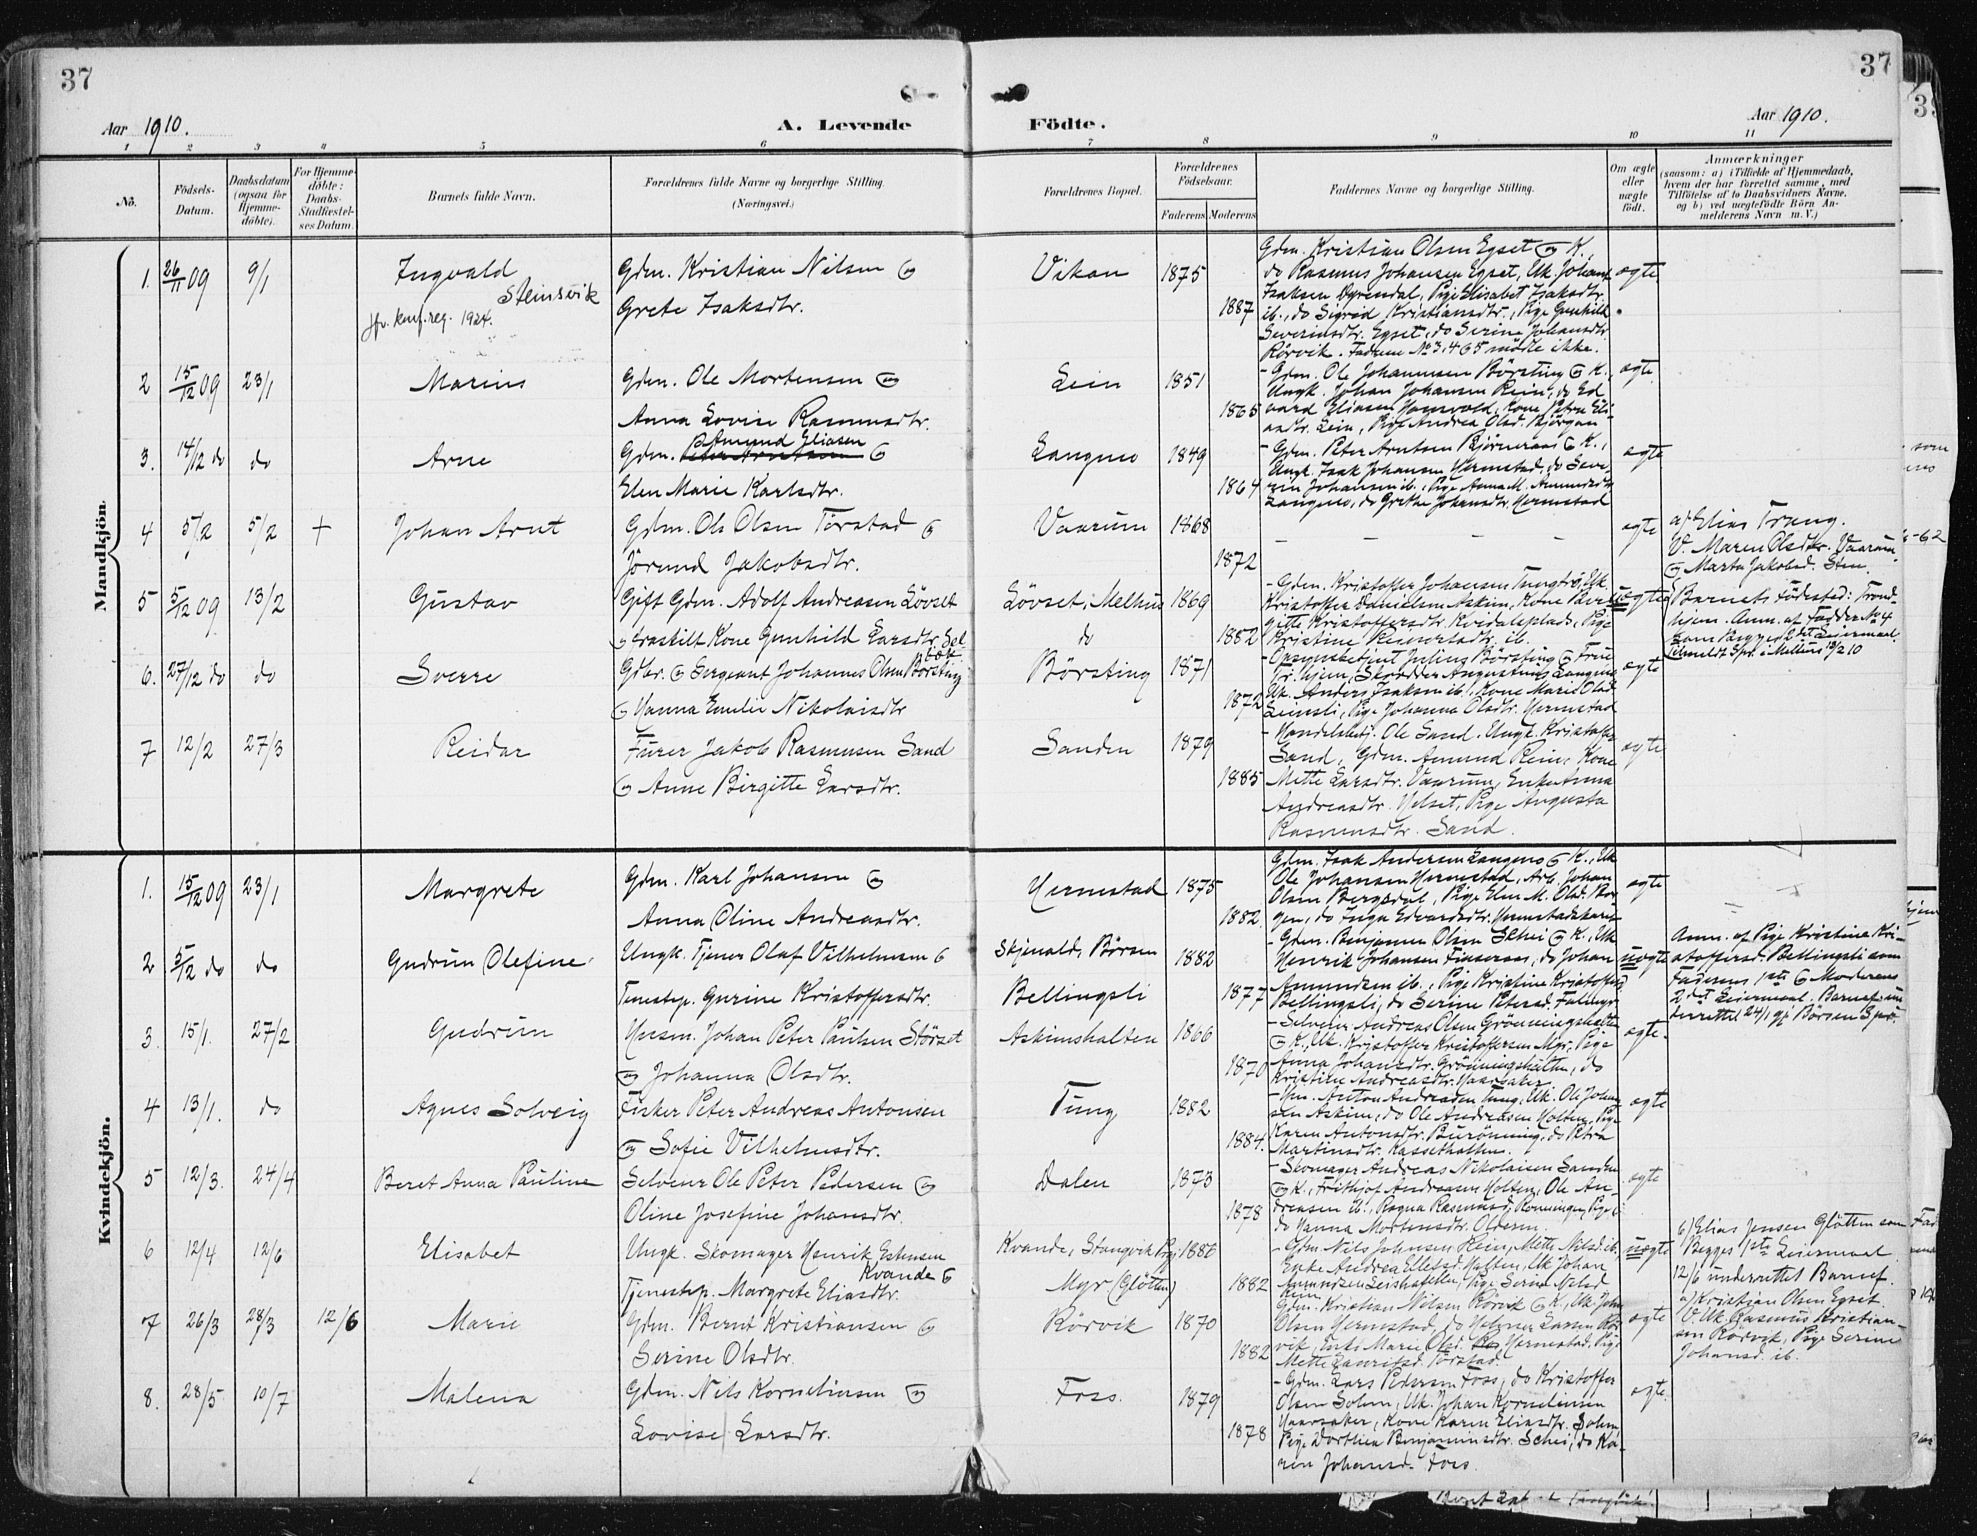 37
37
Aar 1910.
A. Levende
Födte.
Aar 1910.
1 2 3 4 5 6 7 8 9 10 11
No.
Födsels-
Datum.
Daabsdatum
(ogsaa for
Hjemme-
döbte).
For Hjemme-
döbte:
Daabs-
Stadfæstel-
ses Datum.
Barnets fulde Navn.
Forældrenes fulde Navne og borgerlige Stilling.
(Næringsvei.)
Forældrenes Bopæl.
Forældrenes
Födselsaar.
Faderens
Moderens
Faddernes Navne og borgerlige Stilling.
Om ægte
eller
uægte
födt.
Anmærkninger
(saasom: a) i Tilfælde af Hjemmedaab,
hvem der har forrettet samme, med
Tilföielse af to Daabsvidners Navne,
og b) ved uægtefödte Börn An-
melderens Navn m. V.)
Mandkjön.
1. 26/11 09 9/1 Ingvald
Steinsvik
jfv. konf.reg. 1924.
Gdm. Kristian Nilsen og
Grete Isaksdtr.
Vikan 1875
1887
Gdm. Kristian Olsen Egset og K.,
do Rasmus Johansen Egset, Uk. Johan
Isaksen Dyrendal, Pige Elisabet Isaksdtr.
ib., do Sigrid Kristiansdtr., Pige Gunhild
Severinsdtr. Egset, do Serine Johansdtr.
Rörvik. Faddere No 3, 4 & 5 mödte ikke.
ægte
2 15/12 09 23/1 Marius
Gdm. Ole Mortensen og
Anna Lovise Rasmusdtr.
Lein 1851
1865
- Gdm. Ole Johannesen Börsting og K.,
Ungk. Johan Johansen Rein, do Ed
vard Eliasen Hamvold, Kone Petra Eli
asdtr. Lein, Pige Andrea Olsd.
ægte
3. 14/12 do do Arne
Gdm. Amund Eliasen og
Elen Marie Karlsdtr.
Langmo 1849
1864
- Gdm. Peter Arntsen Bjørneraas og K.,
Ungk. Isak Johansen Hermstad, do Seve-
rin Johansen ib., Pige Anna M. Amundsdtr.
Langmo, do Grethe Johansdtr. Hermstad
ægte
4 5/2 5/2 + Johan Arnt
Gdm. Ole Olsen Törstad og
Jörund Jakobsdtr.
Vaarum 1868
1872
- - - - -
ægte
a) Elias Trang.
V. Maren Olsdtr. Vaarum
og Marta Jakobsd. Sten.
5 5/12 09 13/2 Gustav
Gift Gdm. Adolf Andreasen Lövset
og fraskilt Kone Gunhild Larsdtr. Sel
bek
Lövset, Melhus 1869
do 1882
- Gdm. Kristoffer Johansen Tungtrö, Uk.
Kristoffer Danielsen Askim, Kone Berit
Gitte Kristoffersdtr. Kvidalsplads, Pige
Kristine ib.
uægte
Barnets Födested: Trond-
hjem. Anm. af Fadder No 4
som Begges 2det Leiermaal.
Anmeldt Spr. i Melhus 19/2 10
6. 27/12 do do Sverre
Gdbr. og Sergeant Johannes Olsen Börsting
og Hanna Emilie Nikolaisdtr
Börsting 1871
1872
- Opsynsbetjent Julius Börsting og Frue
Tr.hjem, Skrædder Augustinus Langmo
Uk. Anders Isaksen ib., Kone Marie Olsd.
Leinsli, Pige Johanna Olsdtr. Hermstad
ægte
7 12/2 27/3 Reidar
Furer Jakob Rasmusen Sand
og Anne Birgitte Larsdtr.
Sanden 1879
1885
- Handelsbetj. Ole Sand. Ungk. Kristoffer
Sand, Gdm. Amund Rein, Kone
Mette Larsdtr. Vaarum, Enke Anna
Andreasdtr. Helset, Pige Augusta
Rasmusdtr. Sand.
ægte
Kvindekjön.
1. 15/12 09 23/1 Margrete
Gdm. Karl Johansen og
Anna Oline Andreasdtr.
Hermstad 1875
1882
Gdm. Isak Andersen Langmo og K., Uk
Ole Johansen Hermstad, Arb. Johan
Olsen Bergsdal, Pige Elen M. Olsd. Bor-
gen, do Inga Edvardsdtr. Hermstadkaret
ægte
2 5/12 do do Gudrun Olefine
Ungk. Tjener Olaf Vilhelmsen og
Tenestep. Gurine Kristoffersdtr.
Skjenald, Börsen 1882
Bellingsli 1877
- Gdm. Benjamin Olsen Schei og K., Uk
Henrik Johansen Finseraas, do Johan
Amundsen ib., Pige Kristine Kristoffersd.
Bellingsli, do Serine Petersd.
uægte
Anm. af Pige Kristine Kri-
stoffersd. Bellingsli som
Faderens 1ste og Moderens
2det Leiermaal. Barnef. un
derrettet 24/1 gj. Börsen Spr.
3. 15/1. 27/2 Gudrun
Husm. Johan Peter Paulsen Störset
og Johanna Olsdtr.
Askimshalten 1866
1870
- Selveier Andreas Olsen Grönningshalten
og K., Uk. Kristoffer Kristoffersen Myr, Pige
Anna Johansdtr. Grönningshalten, do
Kristine Andreasdtr. Haarsaker
ægte.
4 13/1. do Agnes Solveig
Fisker Peter Andreas Antonsen
og Sofie Vilhelmsdtr.
Tung 1882
1884.
- Hm. Anton Andreasen Tung, Uk. Ole Johan
sen Askim, do Ole Andreasen Holten, Pige
Karen Antonsdtr. Burönning, do Petra
Martinsdtr. Kassethalten.
ægte
5 12/3. 24/4 Beret Anna Pauline
Selveier Ole Peter Pedersen og
Oline Josefine Johansdtr.
Dalen 1873
1878
- Skomager Andreas Nikolaisen Sanden
og K., Frithjof Andreasen Holten, Ole An-
dreasen ib., Ragna Rasmusd. Rönningen, Pige
do Hanna Mortensdtr.
ægte
6 12/4 12/6 Elisabet
Ungk. Skomager Henrik Estensen
Kvande og
Tjenestep. Margrete Eliasdtr.
Kvande, Stangvik Prgj. 1886
Myr (Glötten) 1882
- Gdm. Nils Johnsen Rein, Mette Nilsd. ib.,
Enke Andrea Ellefsd. Halten, Uk Johan
Amundsen Leinshatten, Pige Serine Nilsd
Rein
uægte
b) Elias Jensen Glötten som
Begges 1ste Leiermaal
12/6 underrettet Barnef.
7 26/3 28/3 12/6 Marie
Gdm. Bernt Kristiansen og
Serine Olsdtr.
Rörvik 1870
1882
Gdm. Kristian Nilsen Rörvik og K., Uk. John
Olsen Hermstad, do Larsen Rör
vik, Enke Marie Olsd. Hermstad, Pige
Mette Lauritsd. Törstad.
ægte
a) Kristian Olsen Egset.
V. Uk. Rasmus Kristian-
sen Rörvik, Pige Serine
Johansd. ib.
8. 28/5 10/7 Malena
Gdm. Nils Kornelinsen og
Lovise Larsdtr.
Foss. 1879
1878
- Gdm. Lars Pedersen Foss, do Kristoffer
Olsen Solem, Uk. Johan Kornelinsen
Haarsaker, Kone Karen Eliasdtr. Solem,
Pige Dorthea Benjaminsdtr. Schei, do Ka-
ren Johansd. Foss.
ægte.